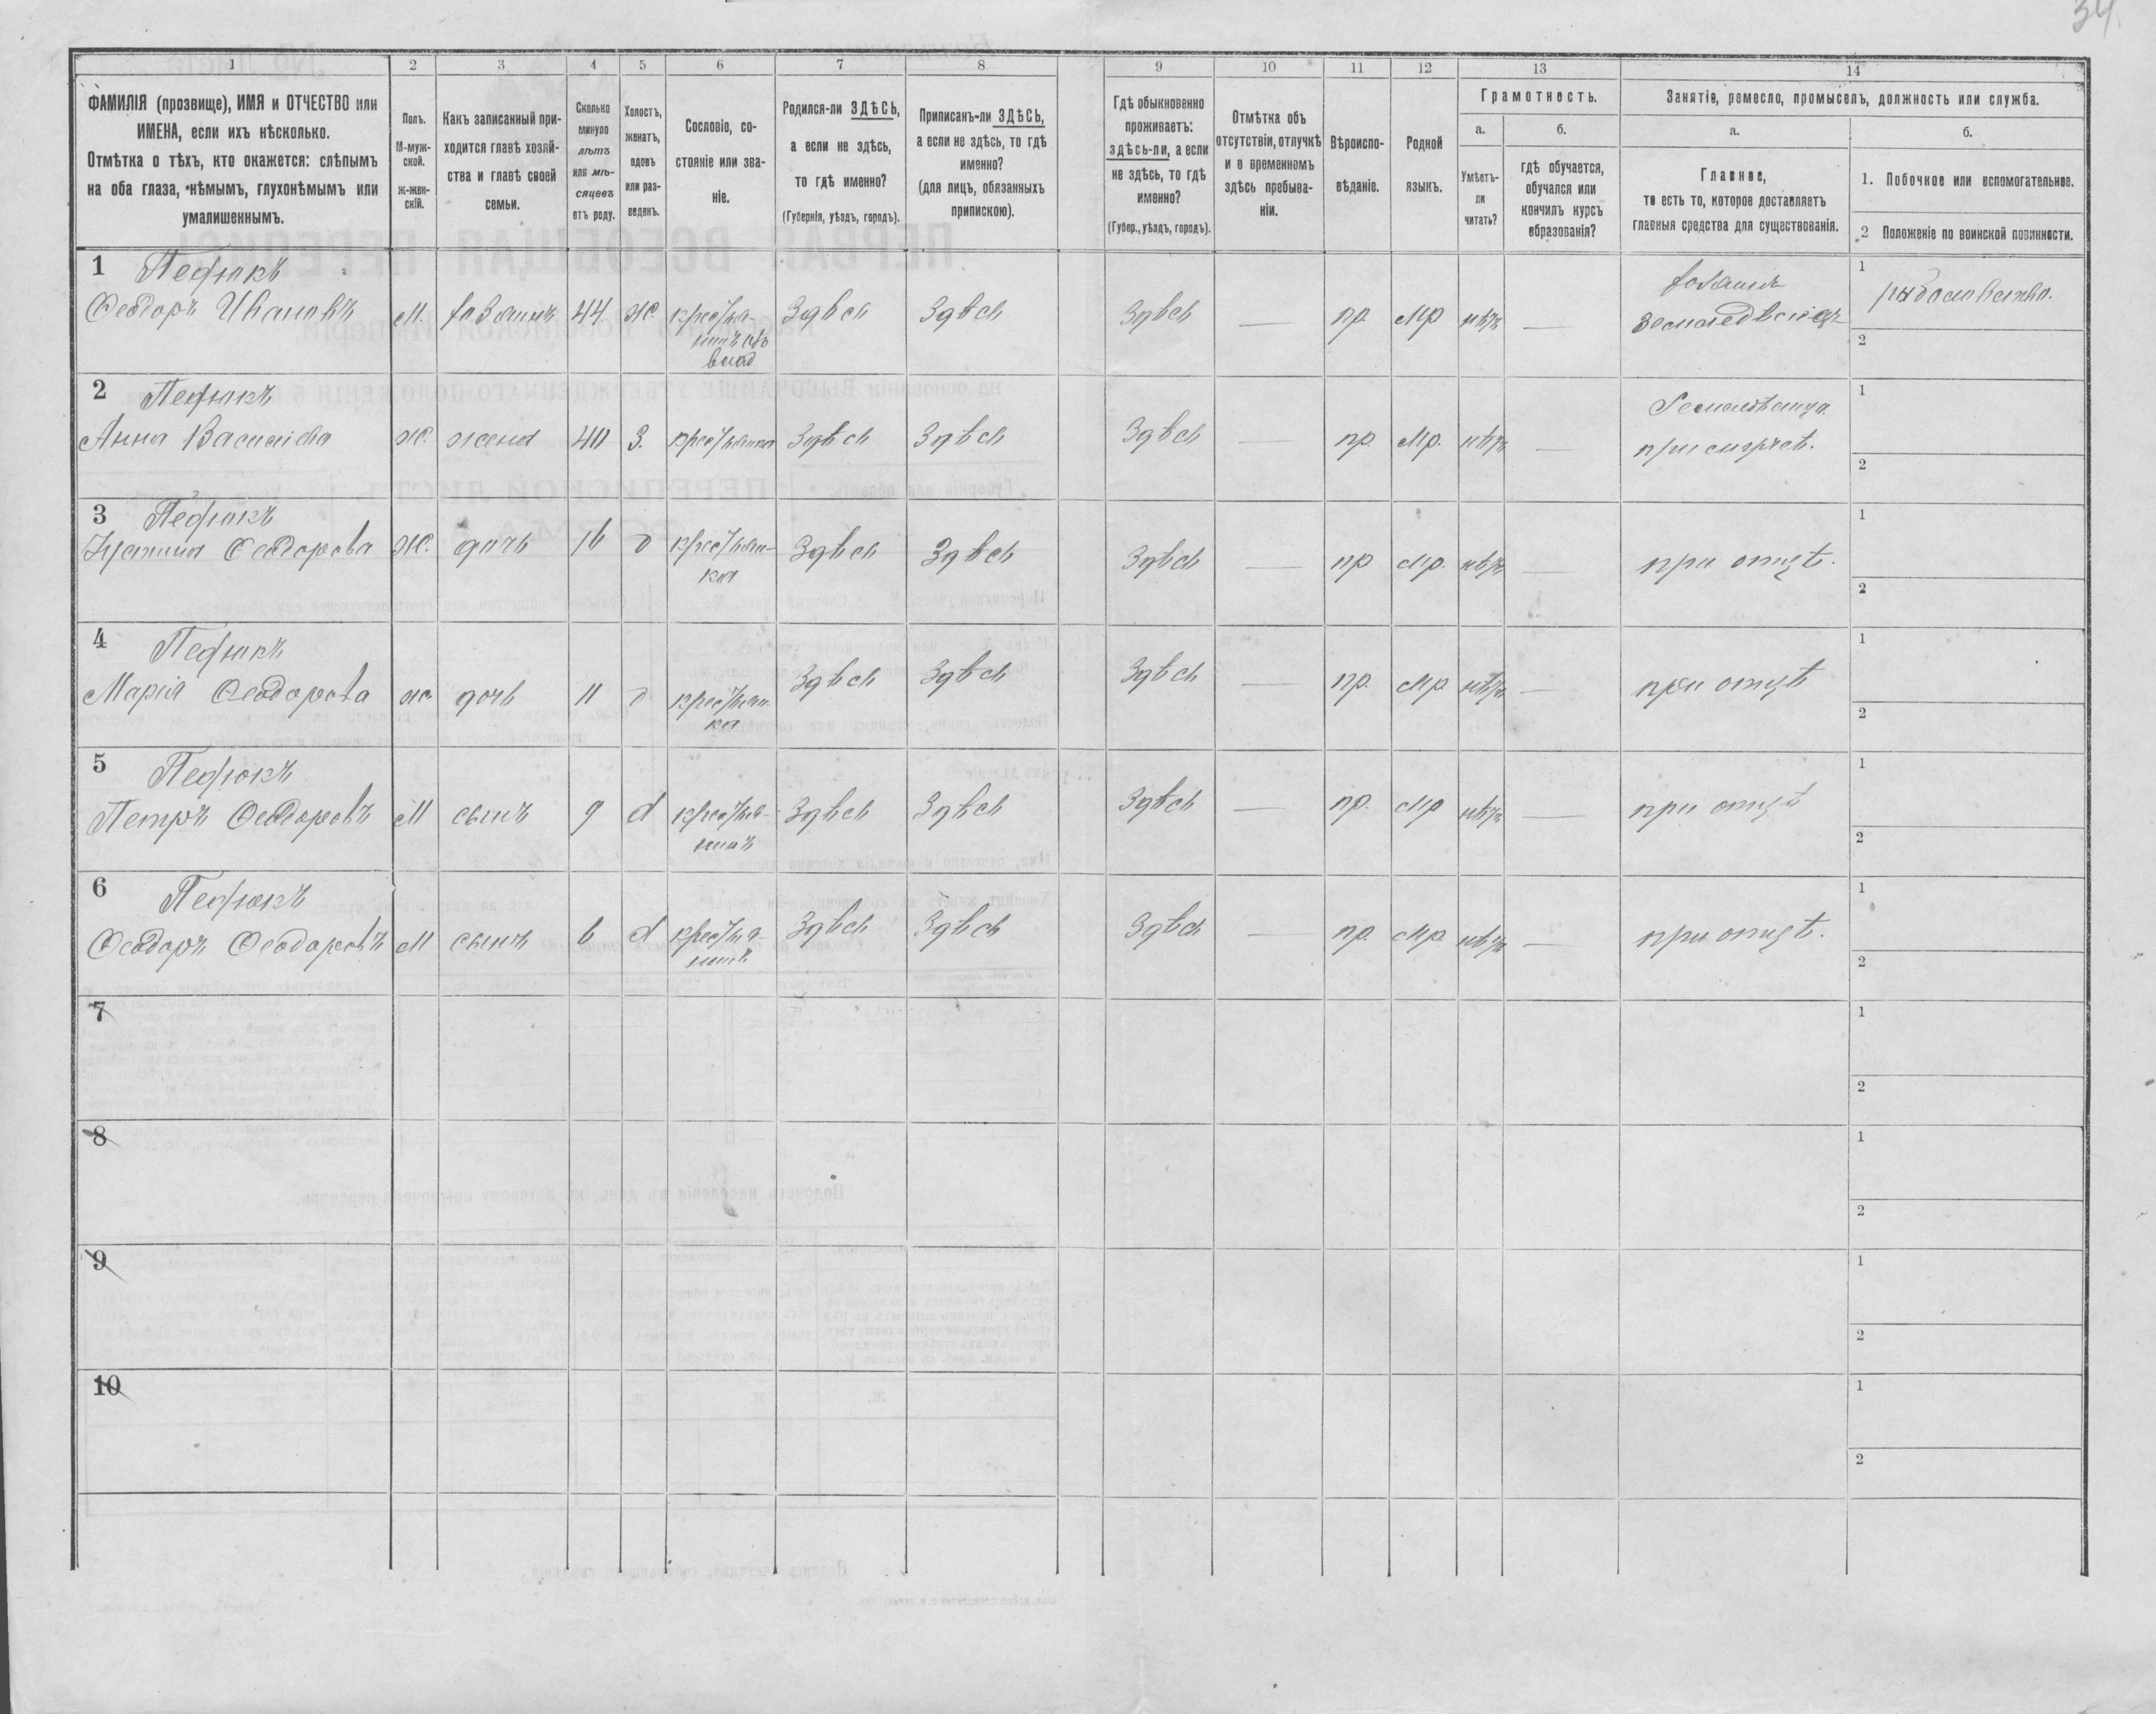 34.
1
2
3
4
5
6
7
8
9
10
11
12
13
14
ФАМИЛІЯ (прозвище), ИМЯ и ОТЧЕСТВО или
ИМЕНА, если ихъ нѣсколько.
Отмѣтка о тѣхъ, кто окажется: слѣпымъ
на оба глаза, нѣмымъ, глухонѣмымъ или
умалишеннымъ.
Полъ.
М-муж-
ской.
Ж-жен-
скій.
Какъ записанный при-
ходится главѣ хозяй-
ства и главѣ своей
семьи.
Сколько
минуло
лѣтъ
или мѣ-
сяцевъ
отъ роду.
Холостъ,
женатъ,
вдовъ
или раз-
веденъ.
Сословіе, со-
стояніе или зва-
ніе.
Родился-ли ЗДѢСЬ,
а если не здѣсь,
то гдѣ именно?
(Губернія, уѣздъ, городъ).
Приписанъ-ли ЗДѢСЬ,
а если не здѣсь, то гдѣ
именно?
(для лицъ, обязанныхъ
припискою).
Гдѣ обыкновенно
проживаетъ:
здѣсь-ли, а если
не здѣсь, то гдѣ
именно?
(Губер., уѣздъ, городъ).
Отмѣтка объ
отсутствіи, отлучкѣ
и о временномъ
здѣсь пребыва-
ніи.
Вѣроиспо-
вѣданіе.
Родной
языкъ.
Грамотность.
а.
Умѣетъ-
ли
читать?
б.
гдѣ обучается,
обучался или
кончилъ курсъ
образованія?
Занятіе, ремесло, промыселъ, должность или служба.
а.
Главное,
то есть то, которое доставляетъ
главныя средства для существованія.
б.
1. Побочное или вспомогательное.
2 Положеніе по воинской повинности.
1 Педюкъ
Феодоръ Ивановъ М. хозяинъ 44 Ж. крестья- Здѣсь Здѣсь Здѣсь — пр. Мр нѣтъ — хозяинъ
нинъ изъ
влад
земледѣлецъ
1 рыболовство.
2
2 Педюкъ
Анна Василіева Ж. жена 40 З. крестьянка Здѣсь Здѣсь Здѣсь — пр. Мр. нѣтъ —
при
1
2
3 Педюкъ
Феодорова Ж. дочь 16 д крестьян- Здѣсь Здѣсь Здѣсь — пр Мр. нѣтъ — при отцѣ.
ка
1
2
4 Педюкъ
Марія Феодорова Ж. дочь 11 д крестьян- Здѣсь Здѣсь Здѣсь — пр. Мр нѣтъ — при отцѣ
ка
1
2
5 Педюкъ
Петръ Феодоровъ М сынъ 9 крестья- Здѣсь Здѣсь Здѣсь — пр. Мр нѣтъ — при отцѣ
нинъ
1
2
6 Педюкъ
Феодоръ Феодоровъ М сынъ 6 крестья- Здѣсь Здѣсь Здѣсь — пр. Мр. нѣтъ — при отцѣ.
нинъ
1
2
7
1
2
8
1
2
9
1
2
10
1
2